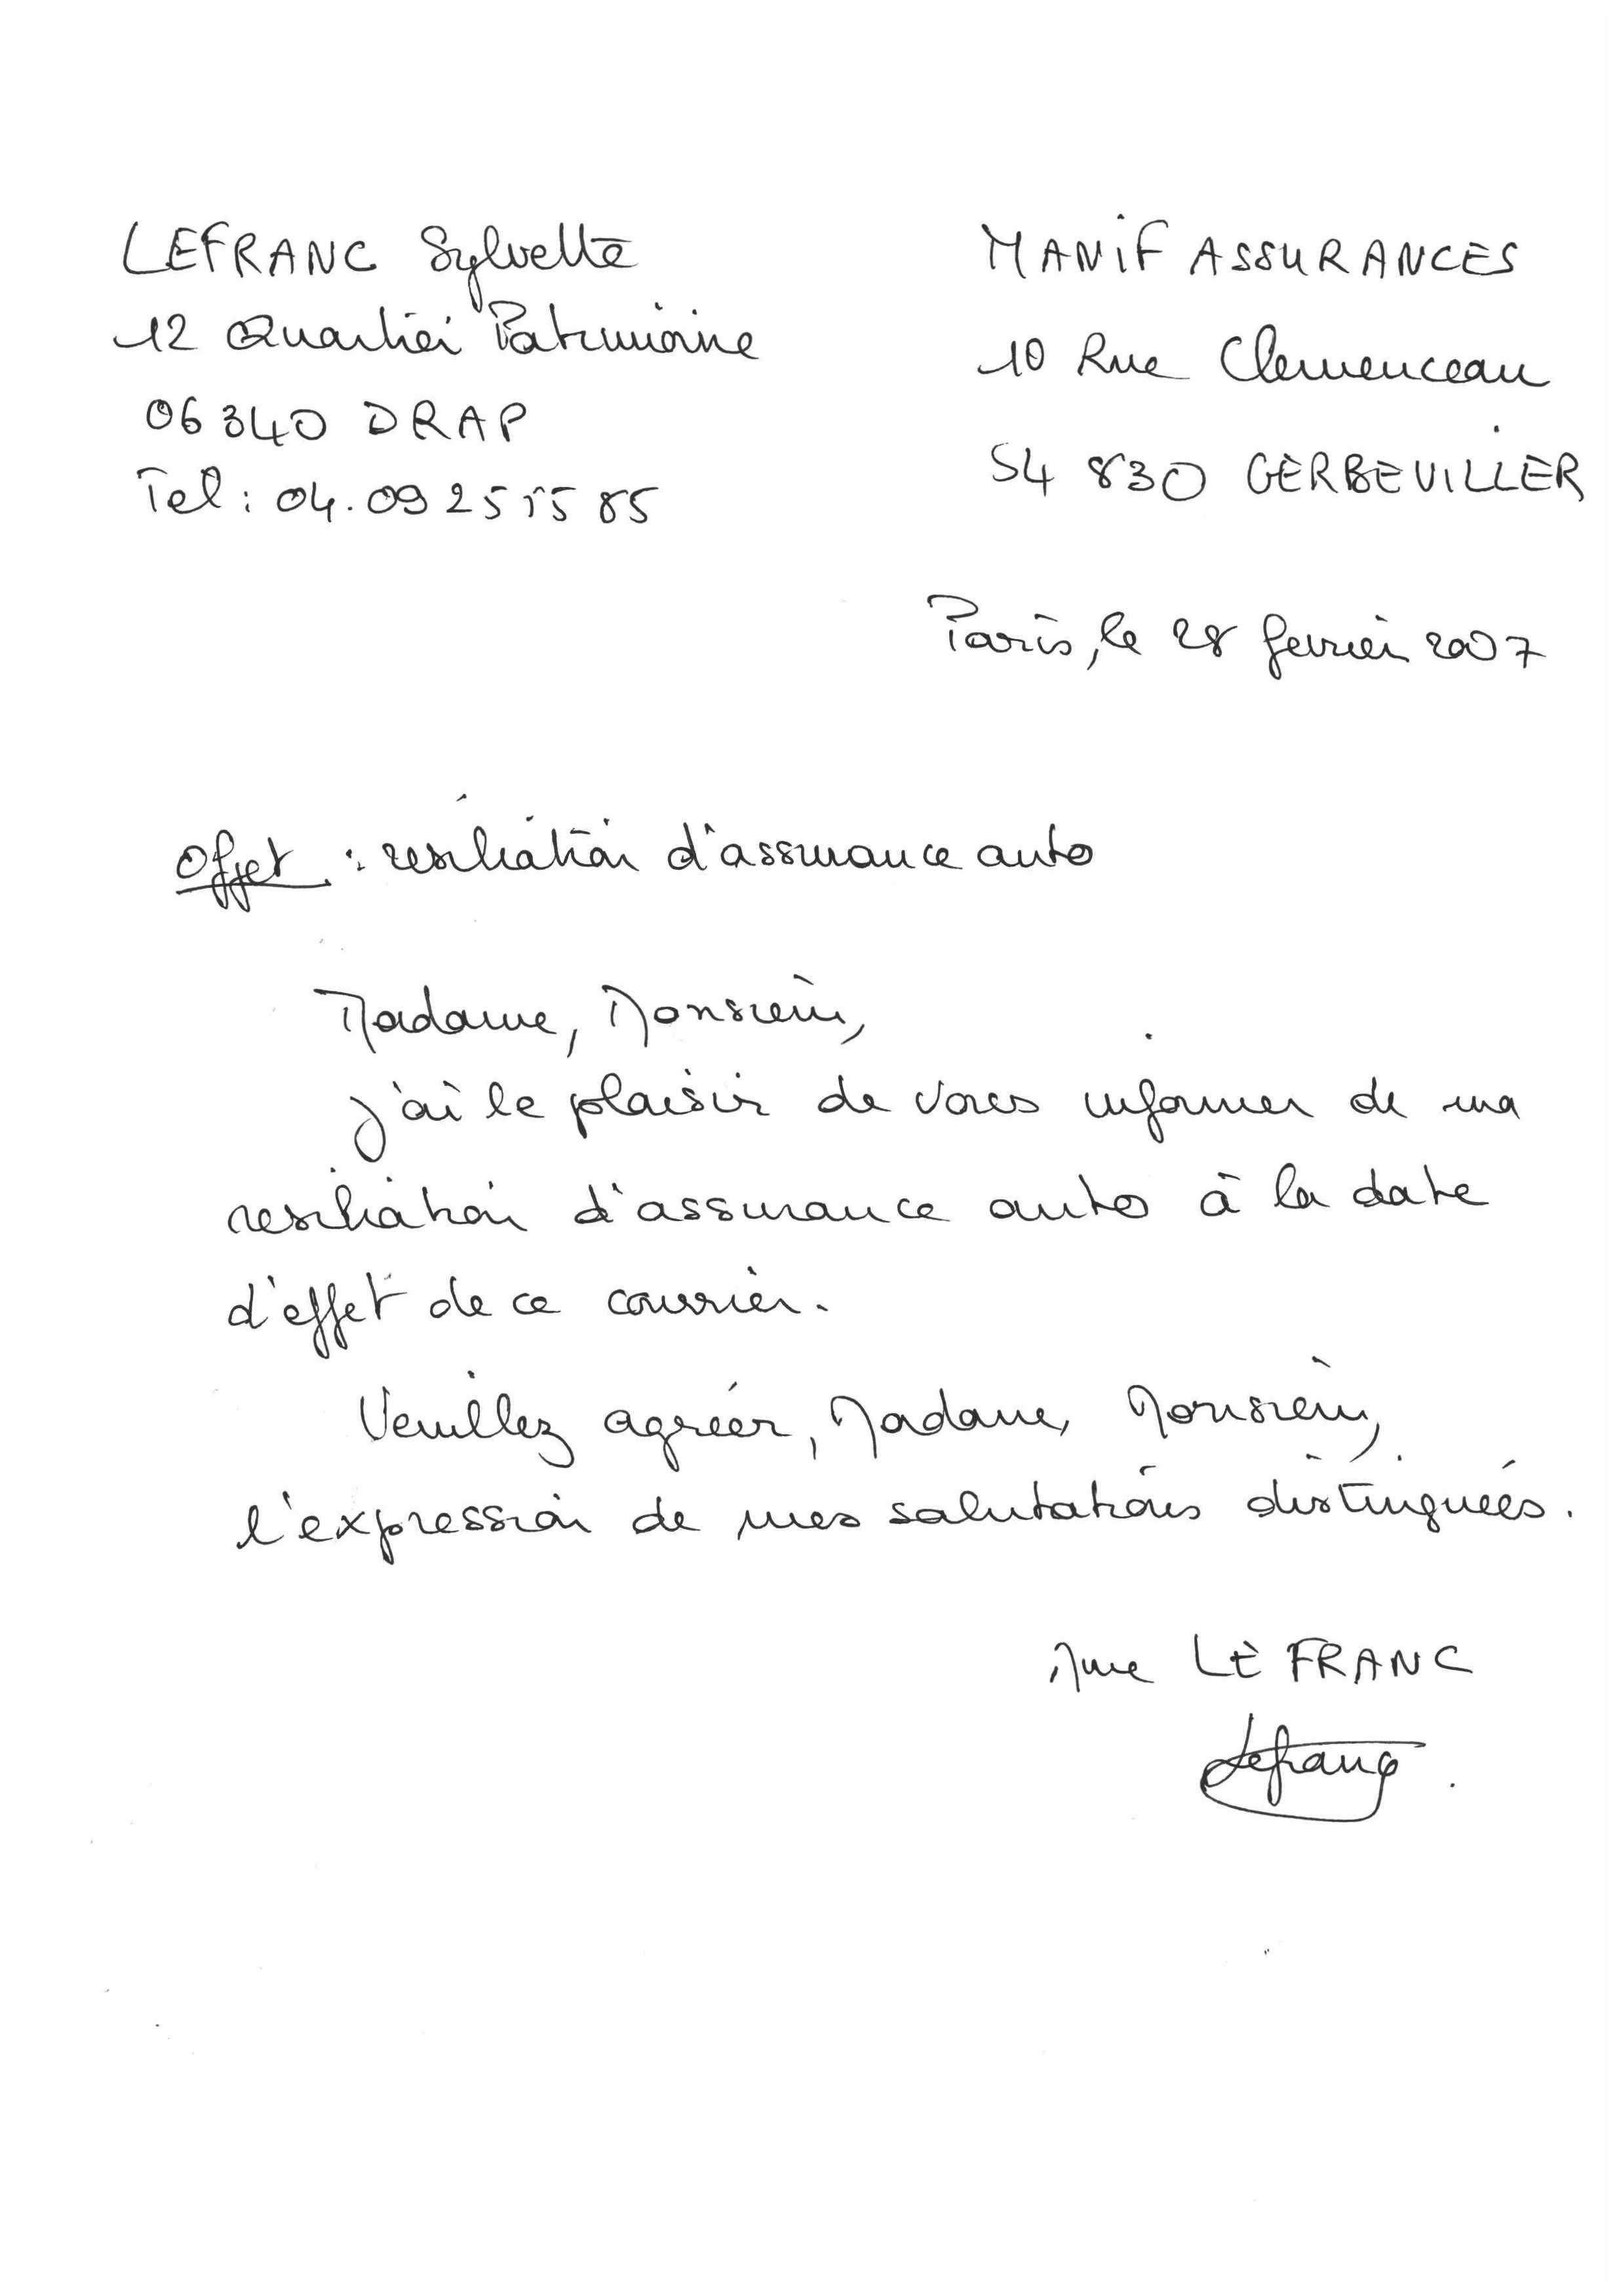 LEFRANC Sylvette
12 Quartier Patrimoine
06340 DRAP
Tel : 04.09 25 15 85
MANiF ASSURANCES
10 Rue Clemenceau
54 830 GERBEVILLER
Paris, le 28 fevrier 2007
Objet : résiliation d'assurance auto
Madame, Monsieur,
J'ai le plaisir de vous informer de ma
résiliation d'assurance auto à la date
d'effet de ce courrier.
Veuillez agréer, Madame, Monsieur,
l'expression de mes salutations distinguées.
Mme LEFRANC
Lefranc